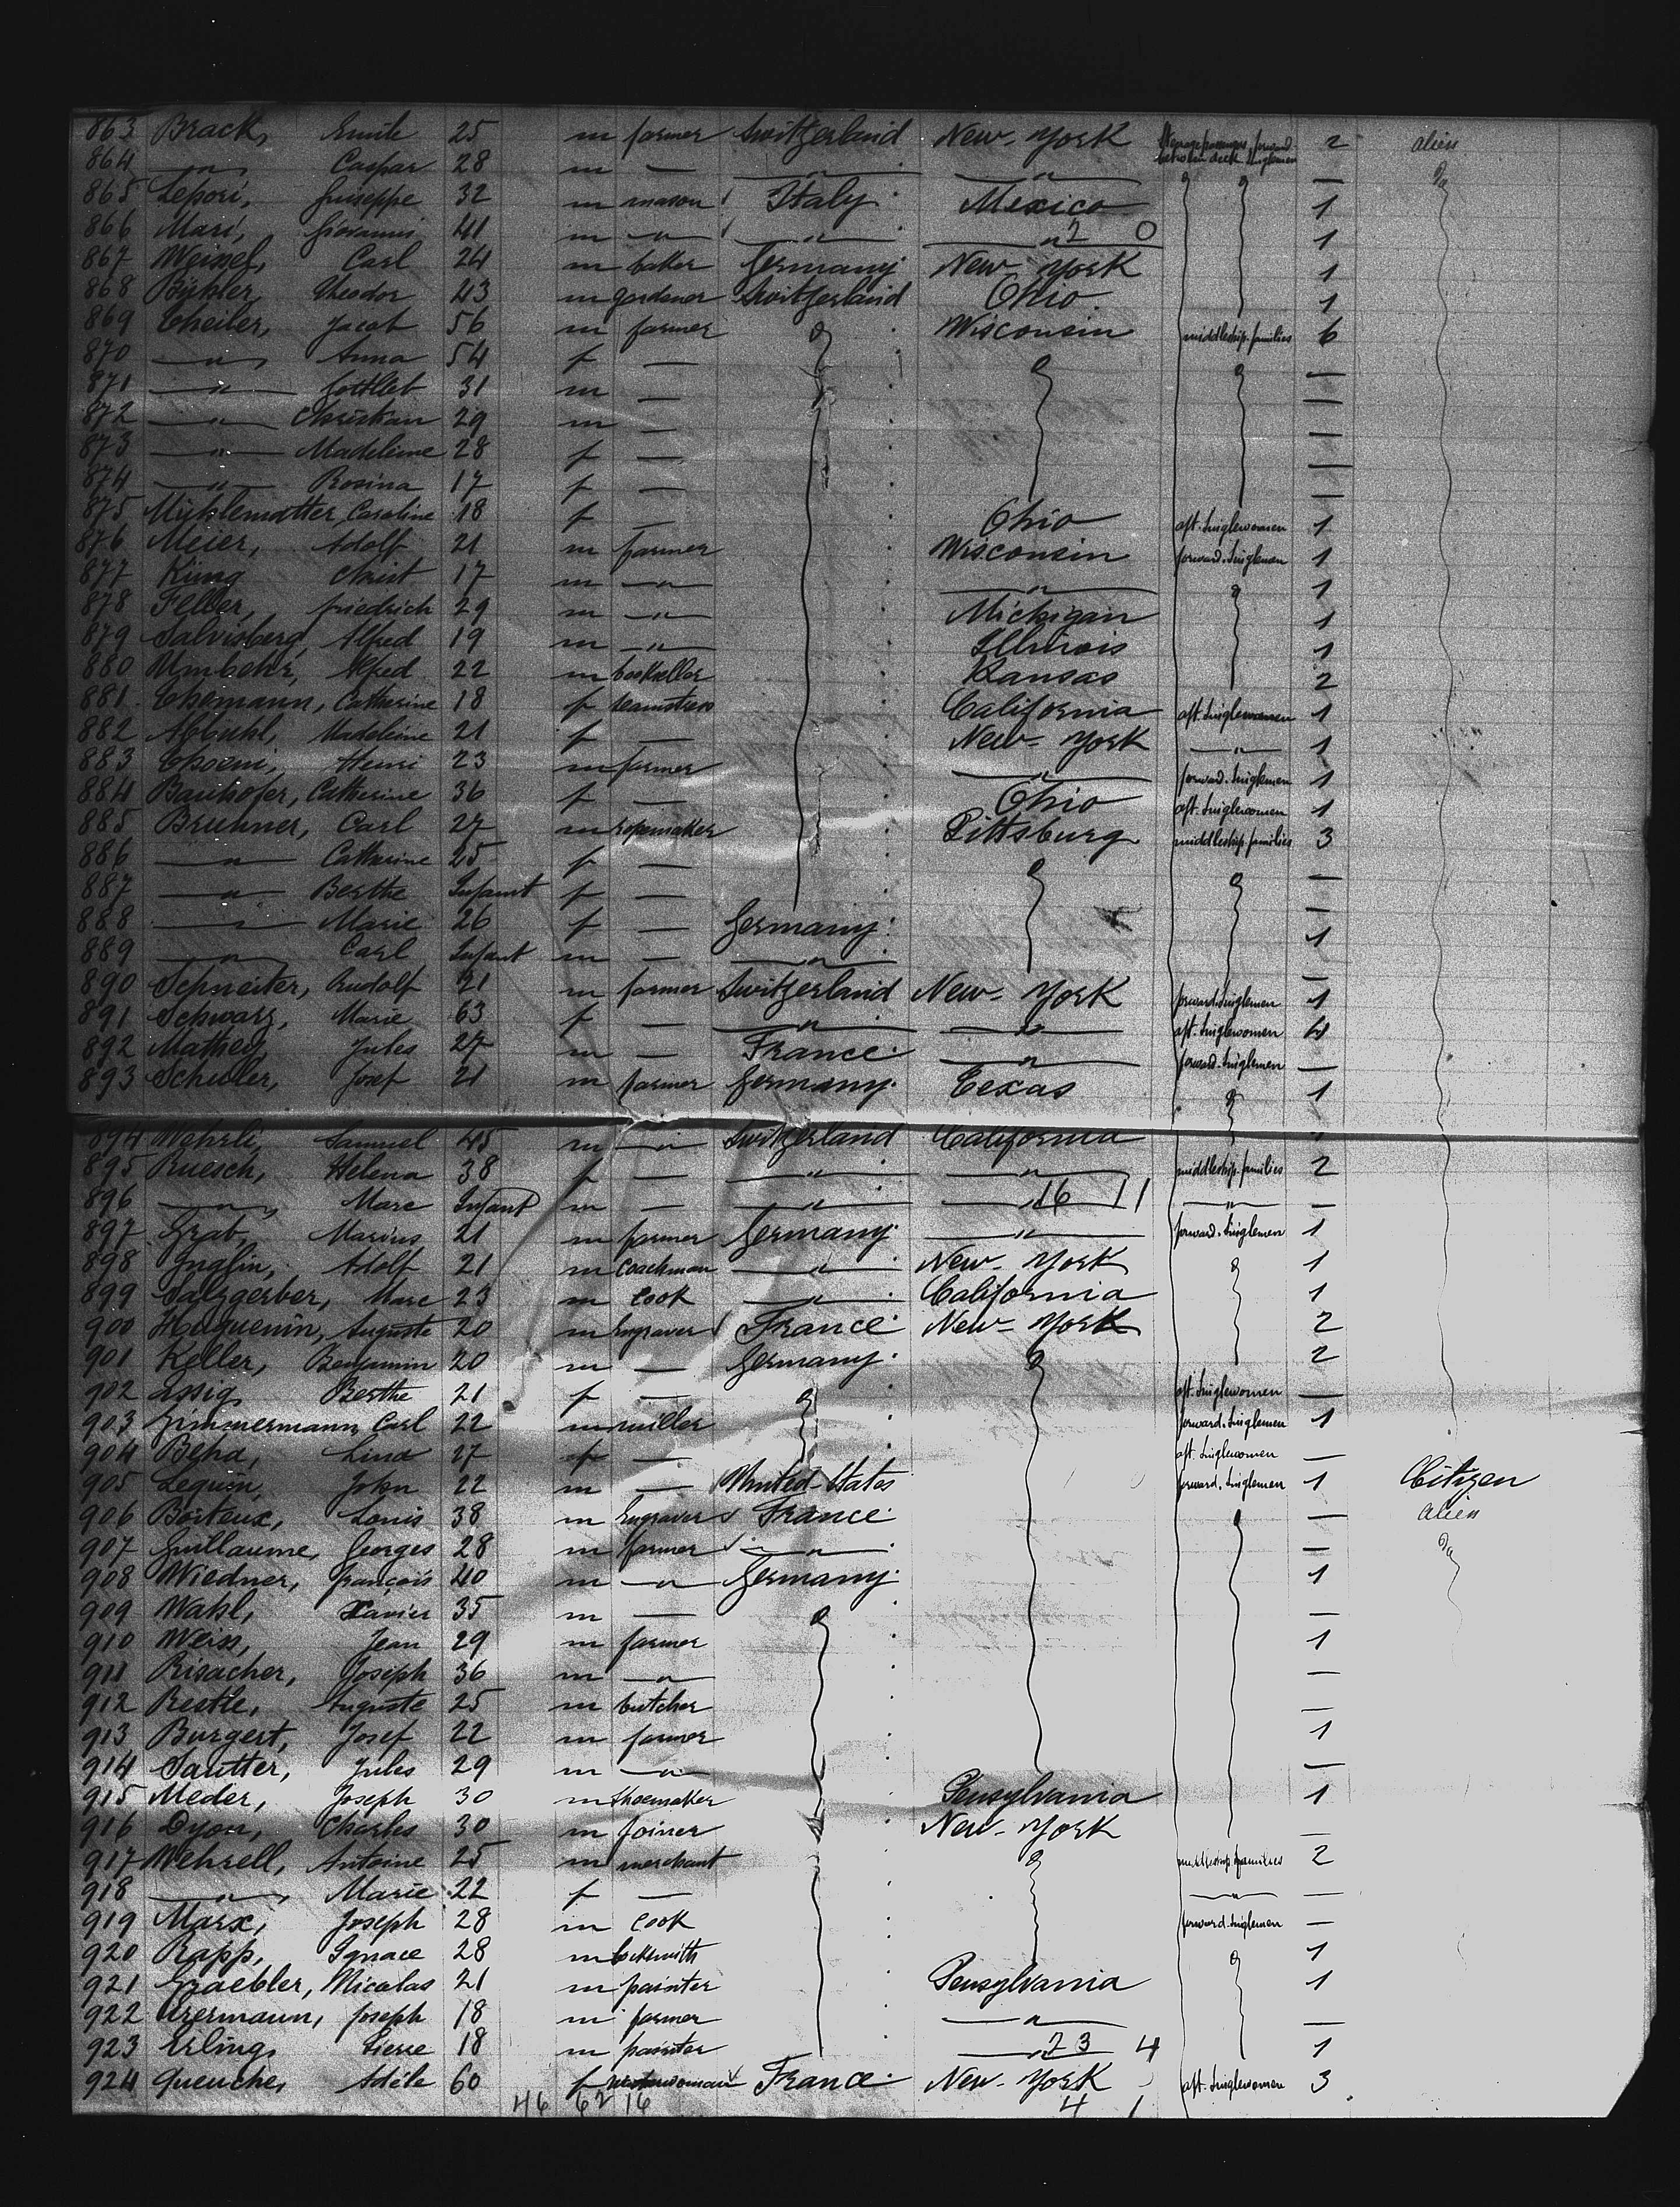 863 Brack, Emile 25 m farmer Switzerland New-York Steerage passengers, forward between deck Singlemen 2 alien
864 —"— Caspar 28 m — —"— —"— — do
865 Lepori, Guiseppe 32 m mason Italy Mexico 1
866 Mari, Giovanni 41 m —"— —"— —"— 2 0 1
867 Weissel, Carl 24 m baker Germany New York 1
868 Bühler, Theodor 43 m gardener Switzerland Ohio 1
869 Theiler, Jacob 56 m farmer Wisconsin middleship. families 6
870 —"— Anna 54 f — —
871 —"— Gottlieb 31 m — —
872 —"— Christian 29 m — —
873 —"— Madeleine 28 f — —
874 —"— Rosina 17 f — —
875 Mühlematter, Caroline 18 f — Ohio aft. Singlewomen 1
876 Meier, Adolf 21 m farmer Wisconsin forward. Singlemen 1
877 Küng Christ 17 m —"— —"— 1
878 Feller, Friedrich 29 m —"— Michigan 1
879 Salvisberg, Alfred 19 m —"— Illinois 1
880 Umbehr, Alfred 22 m bookseller Kansas 2
881 Thomann, Catherine 18 f seamstress California aft. Singlewomen 1
882 Madeleine 21 f — New-York —"— 1
883 Henri 23 m farmer —"— forward. Singlemen 1
884 Bauhofer, Catherine 36 f — Ohio aft. Singlewomen 1
885 Brunner, Carl 27 m ropemaker Pittsburg middleship. families 3
886 —"— Catherine 25 f — —
887 —"— Berthe Infant f — —
888 —"— Marie 26 f — Germany 1
889 —"— Carl Infant m — —"— —
890 Schneiter, Rudolf 21 m farmer Switzerland New-York forward. Singlemen 1
891 Schwarz, Marie 63 f — —"— —"— aft. Singlewomen 4
892 Mathey, Jules 27 m — France —"— forward. Singlemen —
893 Schuler, Josef 21 m farmer Germany Texas 1
894 Wehrli, Samuel 45 m —"— Switzerland California
895 Ruesch, Helena 38 f — —"— —"— middleship. families 2
896 —"— Marc Infant m — —"— —"— 16 11 —"— —
897 Grab, Marius 21 m farmer Germany —"— forward. Singlemen 1
898 Inglin, Adolf 21 m coachman —"— New-York 1
899 Salzgerber, Marc 23 m cook —"— California 1
900 Huguenin, Auguste 20 m Engraver France New-York 2
901 Keller, Benjamin 20 m — Germany 2
902 Essig, Berthe 21 f — aft. Singlewomen —
903 Zimmermann, Carl 22 m miller forward. Singlemen 1
904 Beha, Lina 27 f — aft. Singlewomen —
905 Lequin, John 22 m — United-States forward. Singlemen 1 Citizen
906 Boiteux, Louis 38 m Engraver France — alien
907 Guillaume, Georges 28 m farmer —"— — do
908 Wiedner, François 40 m —"— Germany 1
909 Wahl, Xavier 35 m — —
910 Weiss, Jean 29 m farmer 1
911 Risacher, Joseph 36 m —"— —
912 Restle, Auguste 25 m butcher —
913 Burgert, Josef 22 m farmer 1
914 Sautter, Jules 29 m —"— —
915 Meder, Joseph 30 m shoemaker Pensylvania 1
916 Dyon, Charles 30 m joiner New-York —
917 Wehrell, Antoine 25 m merchant middleship families 2
918 —"— Marie 22 f — —"— —
919 Marx, Joseph 28 m cook forward. Singlemen —
920 Rapp, Ignace 28 m locksmith 1
921 Graebler, Nicolas 21 m painter Pensylvania 1
922 Joseph 18 m farmer —"— —
923 Erling, Pierre 18 m painter —"— 23 4 1
924 Queuche, Adèle 60 f France New-York aft. Singlewomen 3
46 62 16 4 1